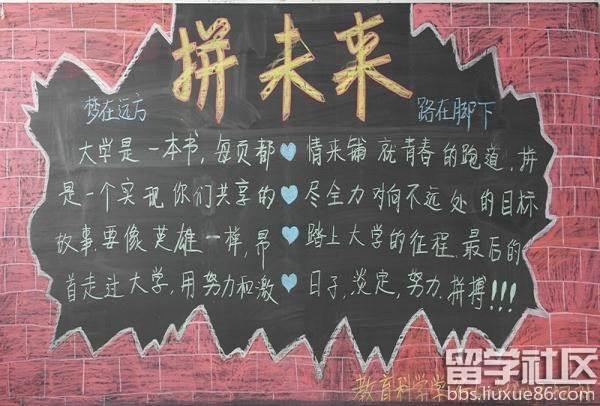 拼未来
梦在远方
路在脚下
大学是一本书,每页都
是一个实现你们共享的
故事.要像英雄一样,昂
首走过大学,用努力和激
情来铺就青春的跑道,拼
尽全力对向不远处的目标
踏上大学的征程.最后的
日子,淡定,努力.拼搏!!!
教育科学学
留学社区
bbs.liuxue86.com